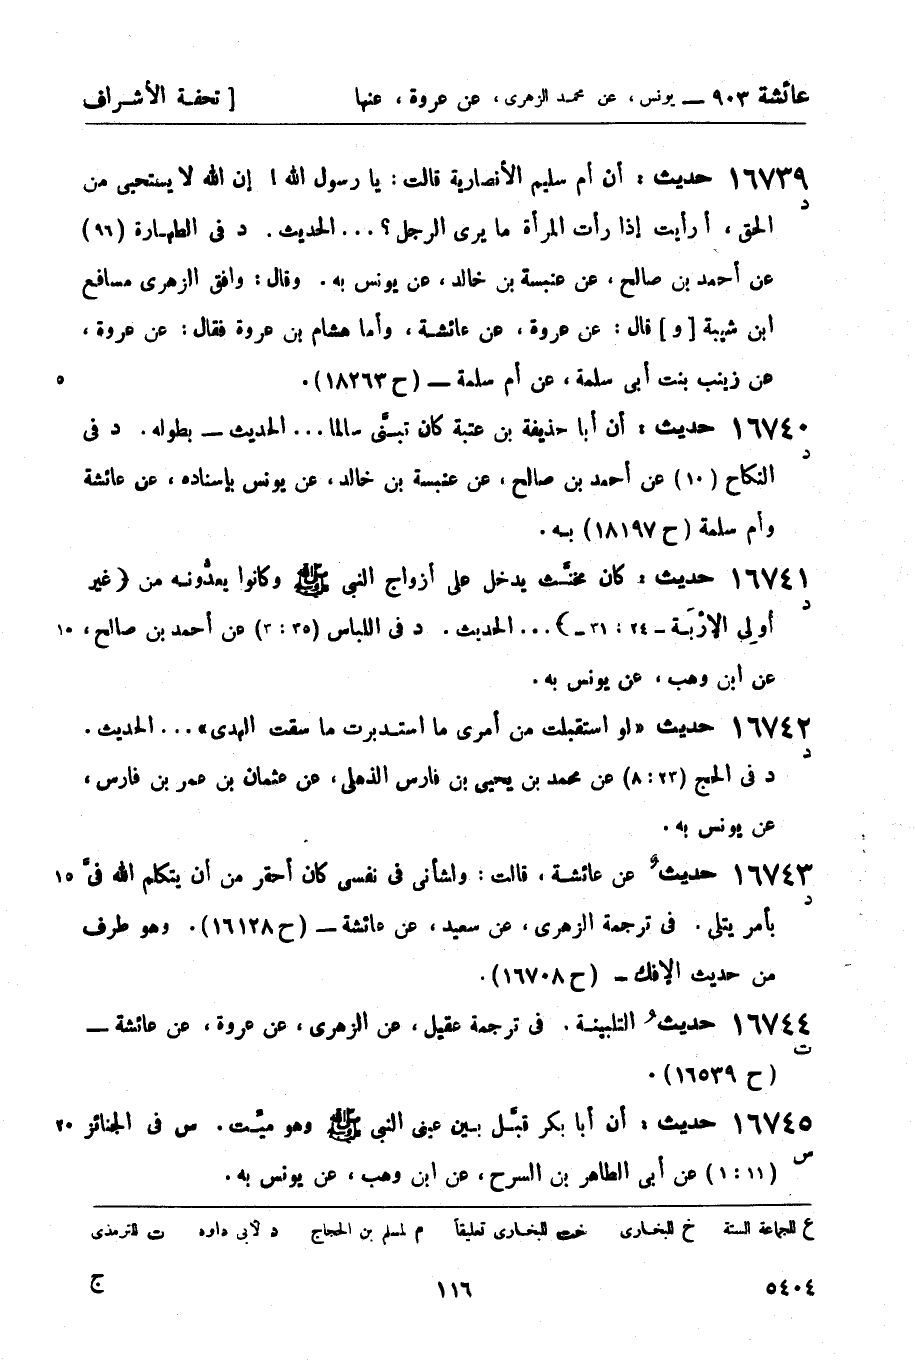 عائشة ٩٠٣ — يونس، عن محمد الزهرى، عن عروة، عنها [ تحفة الأشراف
١٦٧٣٩ حديث : أن أم سليم الأنصارية قالت : يا رسول الله ! إن الله لا يستحيى من
د
الحق ، أرأيت إذا رأت المرأة ما يرى الرجل ؟ ... الحديث . د فى الطهارة (٩٦)
عن أحمد بن صالح ، عن عنبسة بن خالد ، عن يونس به . وقال : وافق الزهرى مسافع
ابن شيبة [ و ] قال : عن عروة ، عن عائشة ، وأما هشام بن عروة فقال : عن عروة ،
عن زينب بنت أبى سلمة ، عن أم سلمة — (ح ١٨٢٦٣) . ٥
١٦٧٤٠ حديث : أن أبا حذيفة بن عتبة كان تبنَّى سالما ... الحديث — بطوله . د فى
د
النكاح (١٠) عن أحمد بن صالح ، عن عنبسة بن خالد ، عن يونس بإسناده ، عن عائشة
وأم سلمة (ح ١٨١٩٧) به .
١٦٧٤١ حديث : كان مخنَّث يدخل على أزواج النبى ﷺ وكانوا يعدُّونه من ﴿غير
د
أولِى الإرْبَة ــ ٢٤ : ٣١ ــ﴾ ... الحديث . د فى اللباس (٣٥ : ٣) عن أحمد بن صالح ، ١٠
عن ابن وهب ، عن يونس به .
١٦٧٤٢ حديث «لو استقبلت من أمرى ما استدبرت ما سقت الهدى» ... الحديث .
د
د فى الحج (٢٣ : ٨) عن محمد بن يحيى بن فارس الذهلى ، عن عثمان بن عمر بن فارس ،
عن يونس به .
١٦٧٤٣ حديثُ عن عائشة ، قالت : ولشأنى فى نفسى كان أحقر من أن يتكلم الله فىَّ ١٥
د
بأمر يتلى . فى ترجمة الزهرى ، عن سعيد ، عن عائشة — (ح ١٦١٢٨) . وهو طرف
من حديث الإفك — (ح ١٦٧٠٨) .
١٦٧٤٤ حديثُ التلبينة . فى ترجمة عقيل ، عن الزهرى ، عن عروة ، عن عائشة —
ت
(ح ١٦٥٣٩) .
١٦٧٤٥ حديث : أن أبا بكر قبَّل بين عينى النبى ﷺ وهو ميِّت . س فى الجنائز ٢٠
س
(١١ : ١) عن أبى الطاهر بن السرح ، عن ابن وهب ، عن يونس به .
ع للجماعة الستة خ للبخارى خت للبخارى تعليقاً م لمسلم بن الحجاج د لأبى داود ت للترمذى
٥٤٠٤ ١١٦ ج